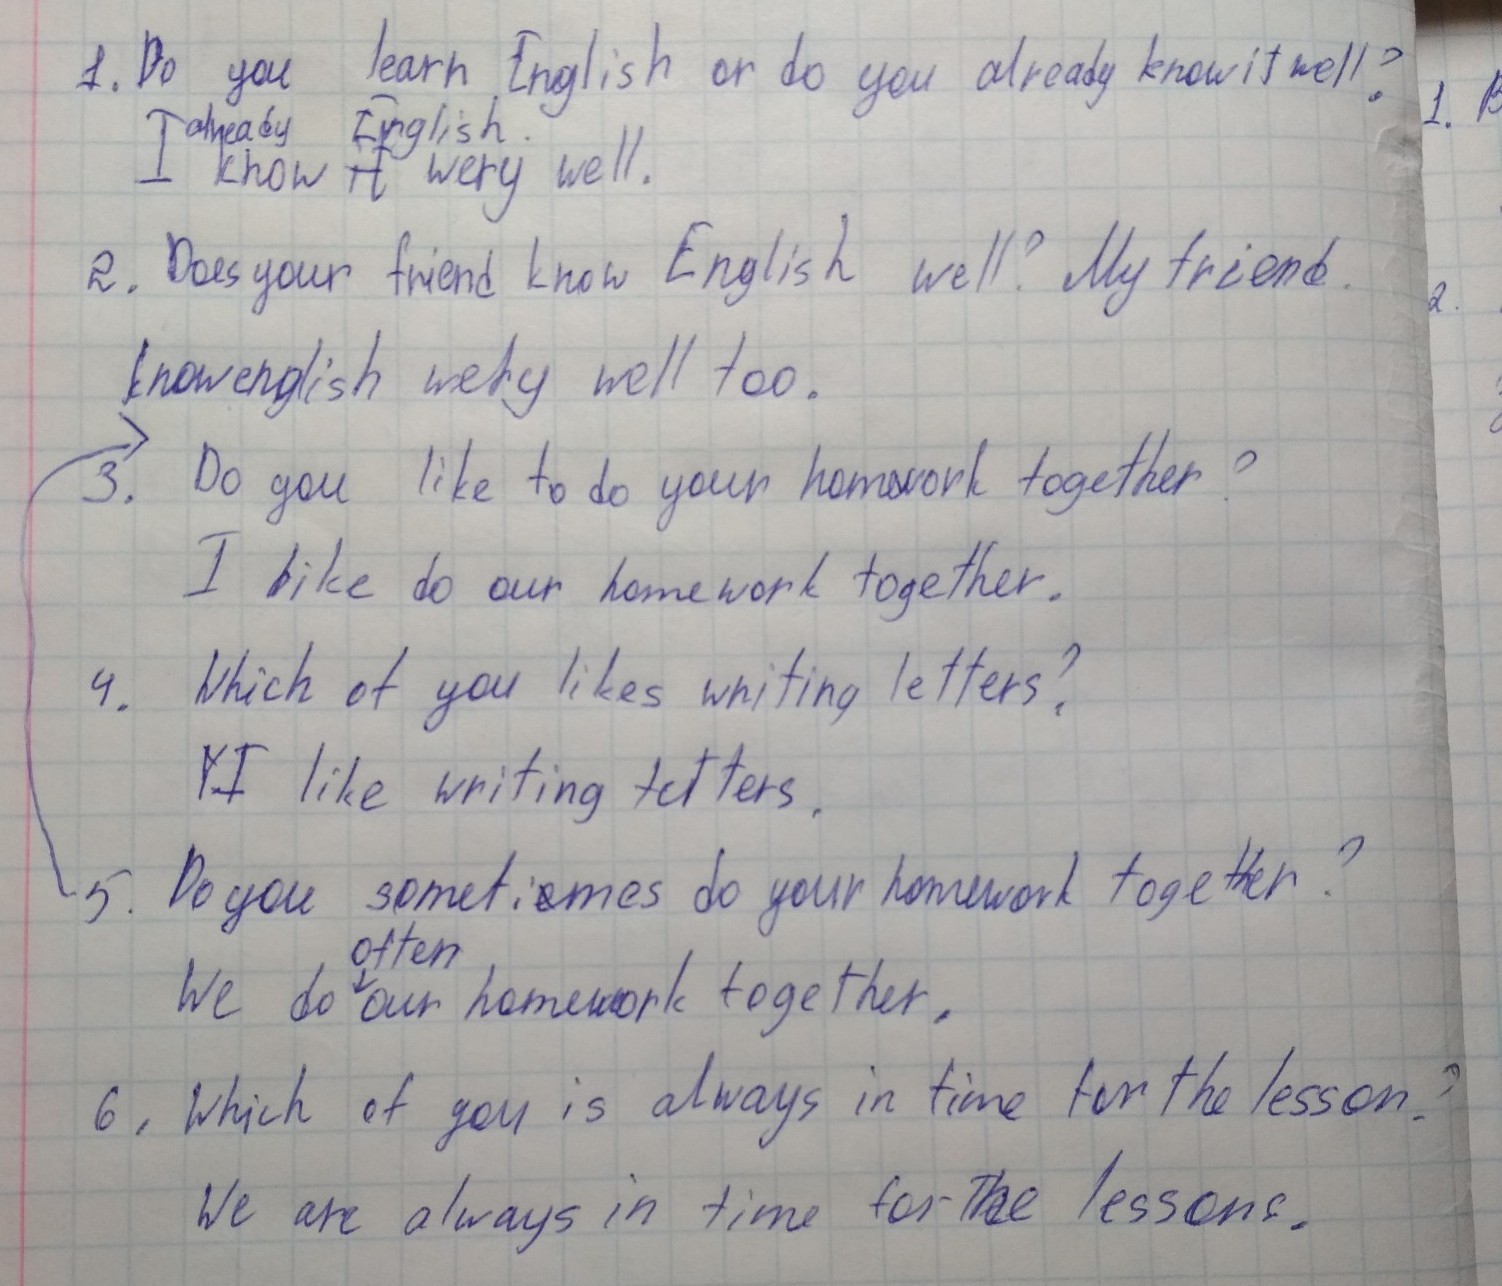 1. Do you learn English or do you already know it well?
already English.
I know it wery well.
2. Does your friend know English well? My friend.
know english wery well too.
3. Do you like to do your homework together?
I like do our homework together.
4. Which of you likes writing letters?
I like writing letters.
5. Do you sometimes do your homework together?
often
We do our homework together.
6. Which of you is always in time for the lesson?
We are always in time for the lessons.
1. B
2.